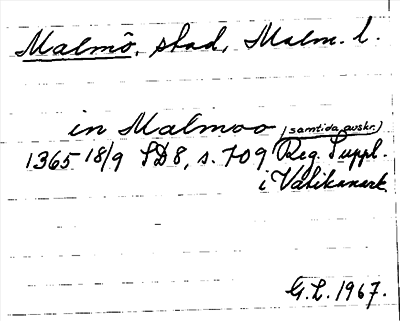 Malmö, stad, Malm. l.
in Malmoo (samtida avskr.)
1365 18/9 SD8, s. 709 Reg. Suppl.
i Vatikanark.
G.L. 1967.